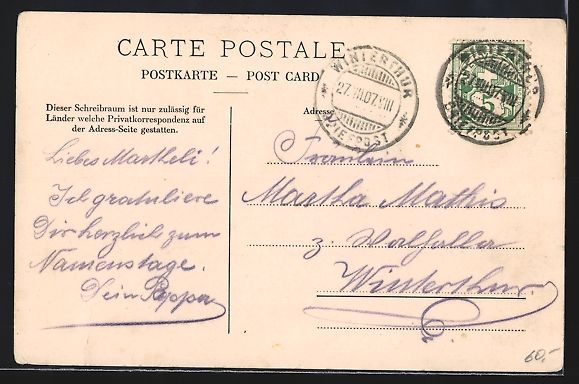 CARTE POSTALE
POSTKARTE — POST CARD
Dieser Schreibraum ist nur zulässig für
Länder welche Privatkorrespondenz auf
der Adress-Seite gestatten.
Adresse
WINTERTHUR
27.VII.07.VIII
BRIEFPOST
WINTERTHUR
BRIEFPOST
Liebes Martheli!
Ich gratuliere
Dir herzlich zum
Namenstage.
Dein Pappa
Fräulein
Martha Mathis
z. Walhalla
Winterthur
60,-